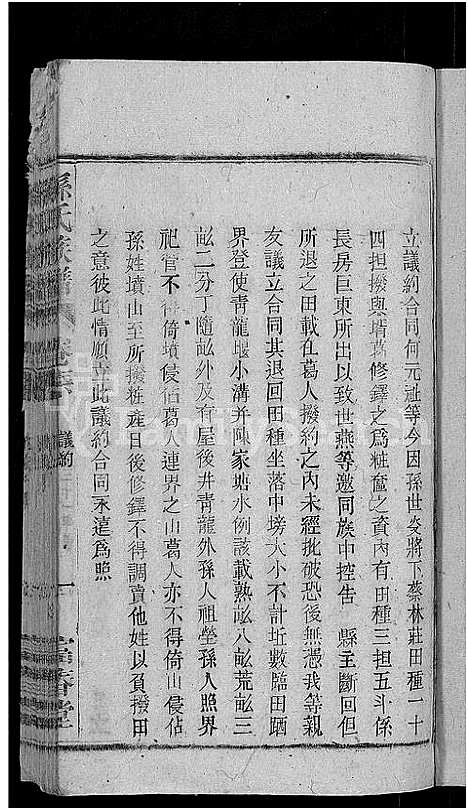 立議約合同何元祉等今因孫世炎將下蔡林莊田種一十
四担撥與壻葛修鐸之為粧奩之資內有田種三担五斗係
長房巨東所出以致世燕等邀同族中控告 縣主斷回但
所退之田載在葛人撥約之內未經批破恐後無憑我等親
友議立合同其退回田種坐落中塝大小不計坵數臨田踊
界登使青龍堰小溝并陳家塘水例該載熟畝八畝荒畝三
畝二分丁隨畝外及有屋後井青龍外孫人祖塋孫人照界
祀管不得倚墳侵佔葛人連界之山葛人亦不得倚山侵佔
孫姓墳山至所撥粧產日後修鐸不得調賣他姓以負撥田
之意彼此情願立此議約合同永遠為照
孫氏族譜 卷六 議約 一